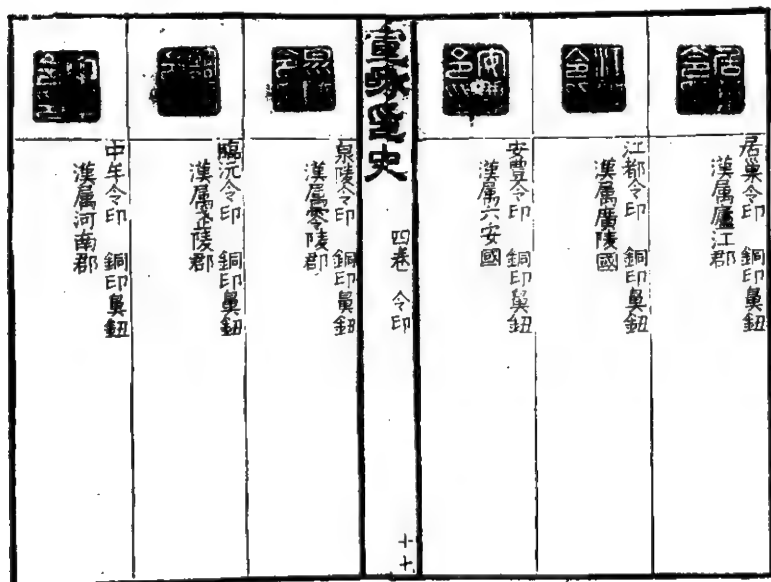 居巢令印 銅印鼻鈕
漢属廬江郡
江都令印 銅印鼻鈕
漢属廣陵國
安豐令印 銅印鼻鈕
漢属六安國
宣和印史
四卷 令印
十十
泉陵令印 銅印鼻鈕
漢属零陵郡
臨沅令印 銅印鼻鈕
漢属武陵郡
中牟令印 銅印鼻鈕
漢属河南郡